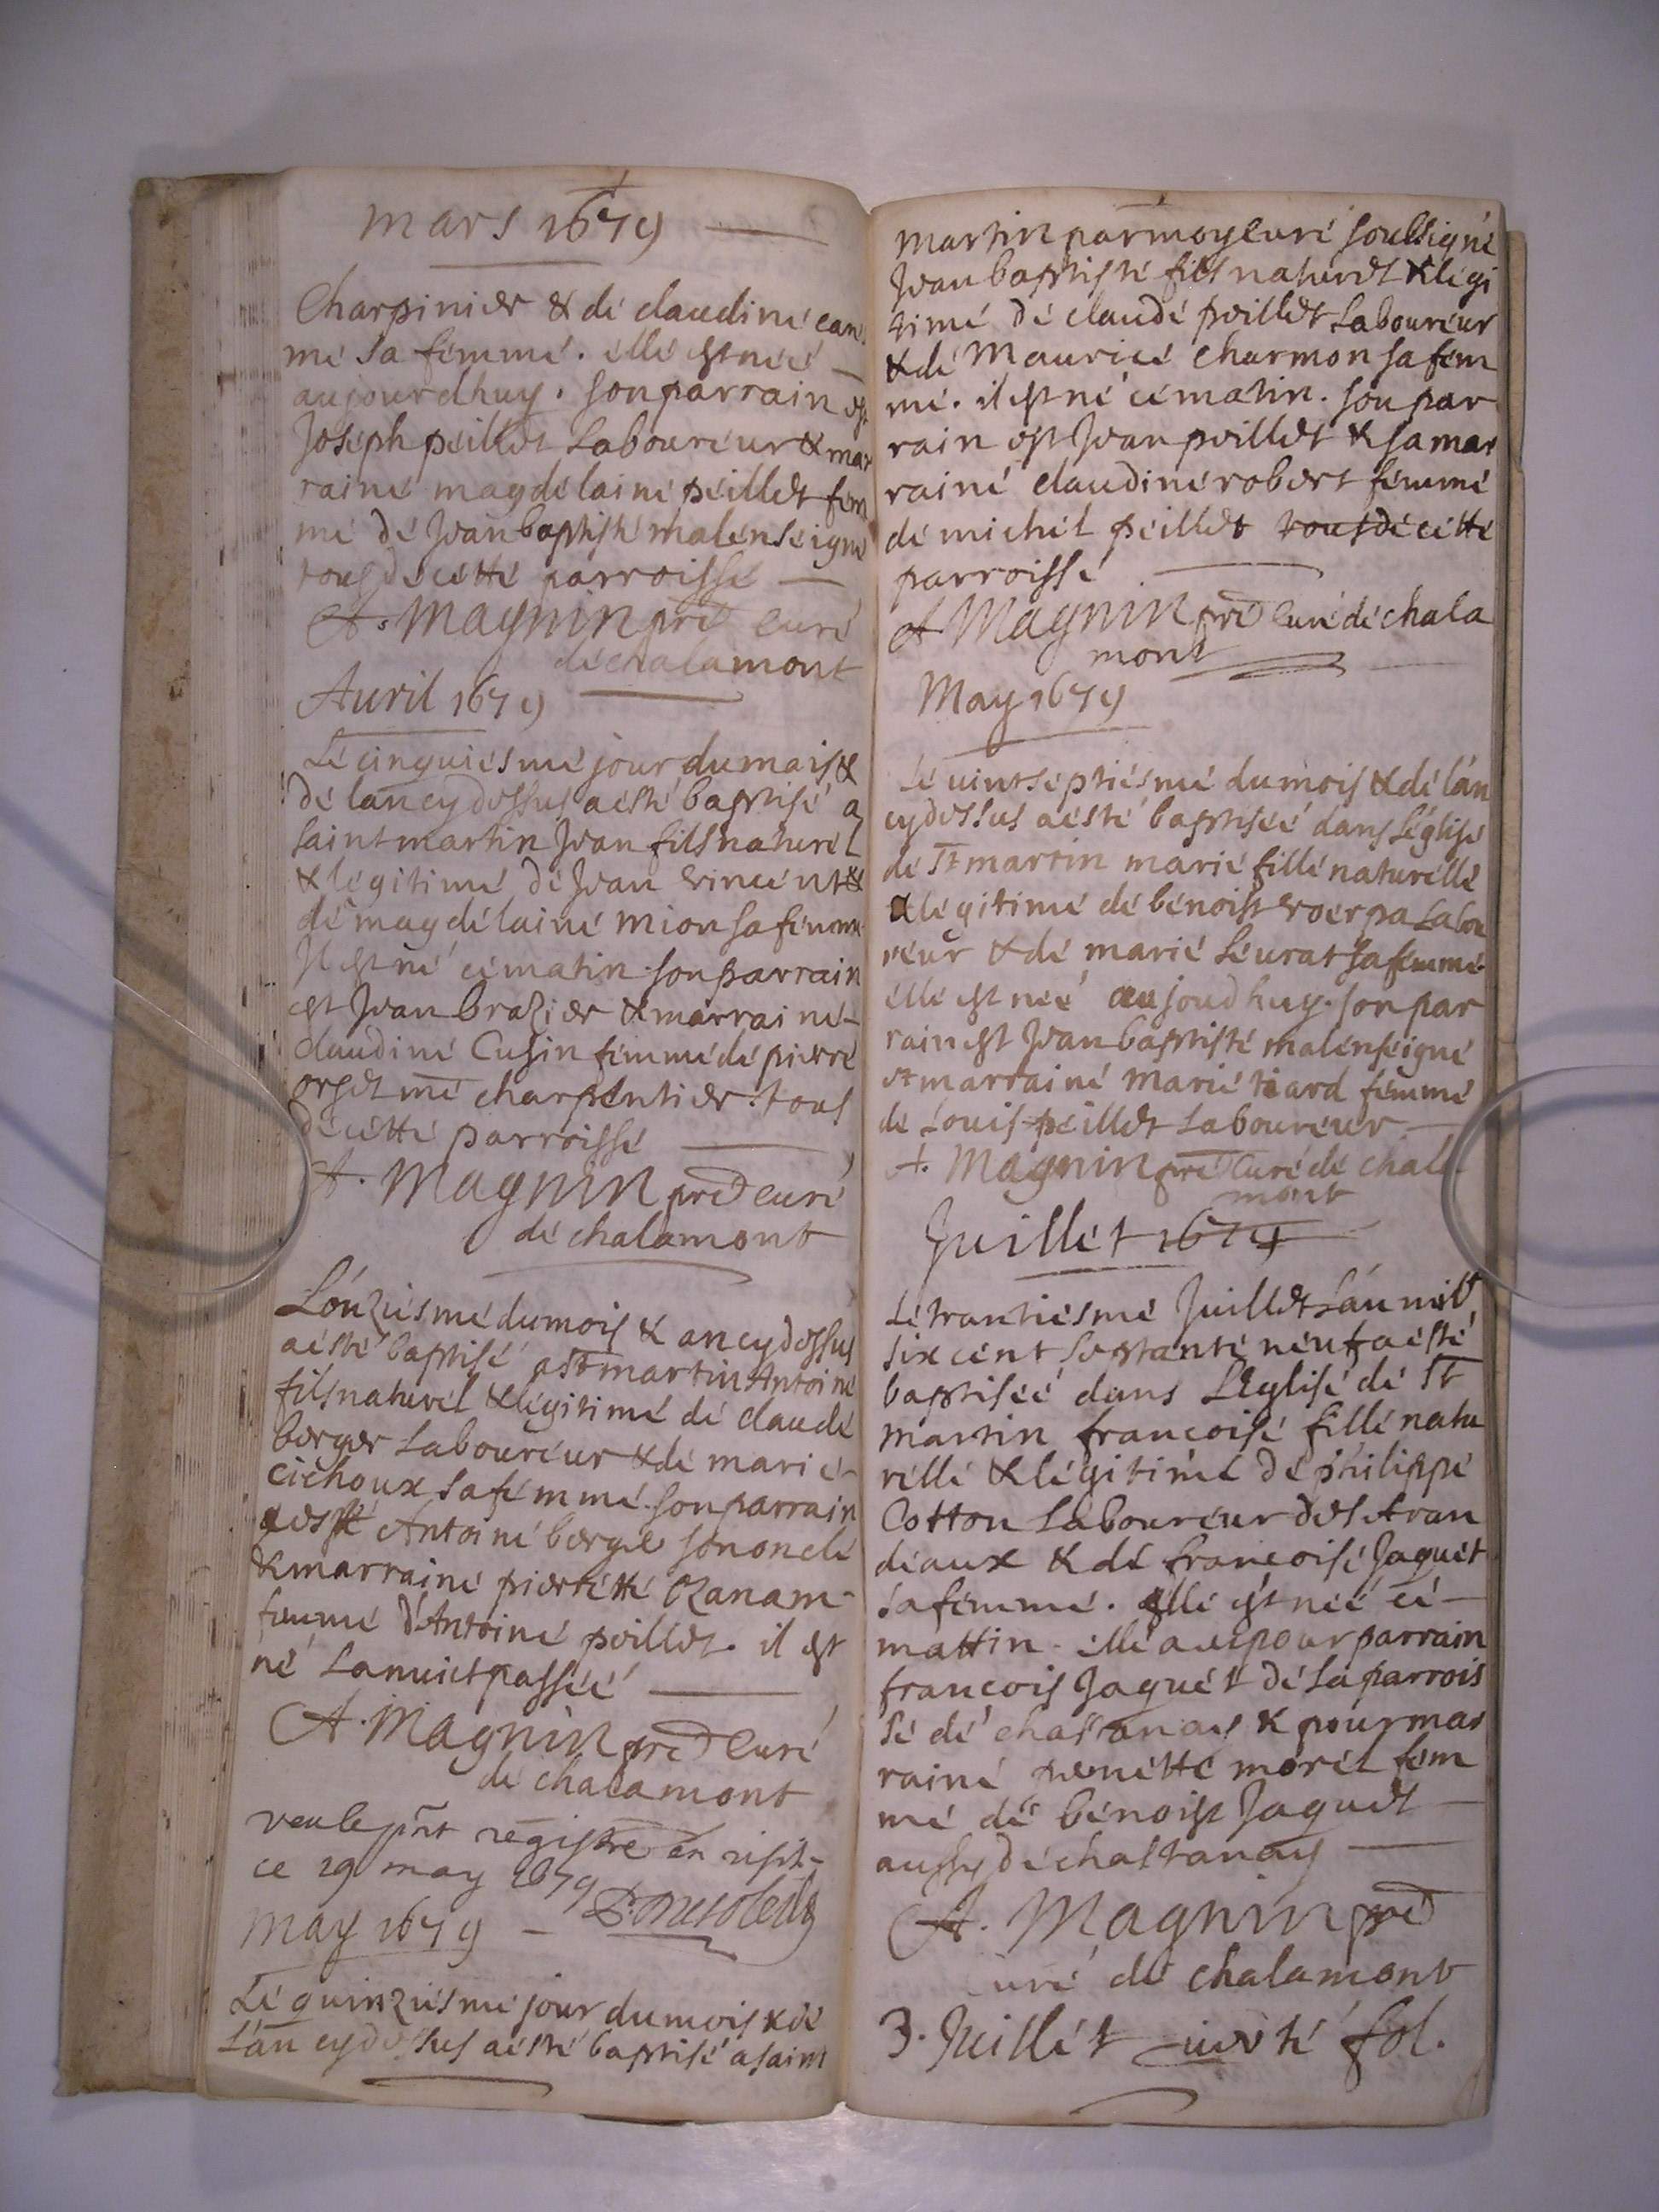 mars 1679
Charpinier & de claudine cam
me sa femme. elle est neé
aujourdhuy. son parrain est
Joseph peillet Laboureur & mar
raine magdelaine peillet fem
me de Jean baptiste malenseigne
tous de cette parroisse
A. Magnin pre curé
de chalamont
Auril 1679
Le cinquiesme jour du mois &
de lan cy dessus a esté baptisé a
saint martin Jean fils naturel
& legitime de Jean vincent &
de magdelaine mion sa femme
Il est né ce matin. son parrain
est Jean brazier & marraine
claudine Cusin femme de pierre
orset me charpentier. tous
de cette parroisse
A. Magnin pre curé
de chalamont
Lonziesme du mois & an cy dessus
a esté baptisé a st martin Antoine
fils naturel & legitime de claude
berger Laboureur & de marie
cichoux sa femme. son parrain
est Antoine berger son oncle
& marraine pierrette Ozanam
femme d'Antoine peillet. il est
né La nuict passeé
A. Magnin pre Curé
de chalamont
veu le pnt registre en visite
ce 29 may 1679
may 1679
Le quinziesme jour du mois & de
Lan cy dessus a esté baptisé a saint
martin par moy curé soubsigné
Jean baptiste fils naturel & legi
time de claude peillet Laboureur
& de Maurice charmon sa fem
me. il est né ce matin. son par
rain est Jean peillet & sa mar
raine claudine robert femme
de michel peillet tous de cette
parroisse
A Magnin pre Curé de chala
mont
May 1679
Le vintseptiesme du mois & de lan
cy dessus a esté baptiseé dans Léglise
de St martin marie fille naturelle
& legitime de benoist voerpa Labou
reur & de marie Leurat sa femme
elle est neé aujoudhuy. son par
rain est Jean baptiste malenseigne
et marraine marie tiard femme
de Louis peillet Laboureur
A. Magnin pre Curé de chala
mont
Juillet 1679
Le trantiesme Juillet Lan mil
six cent septante neuf a esté
baptiseé dans LEglise de St
martin francoise fille natu
relle & legitime de philippe
Cotton Laboureur des Avan
deaux & de francoise Jaquet
sa femme. elle est neé ce
mattin. elle a eu pour parrain
francois Jaquet de La parrois
se de chastanay & pour mar
raine morel fem
me de benoist Jaquet
aussy de chastanay
A. Magnin pre
curé de chalamont
3. Juillet fol.